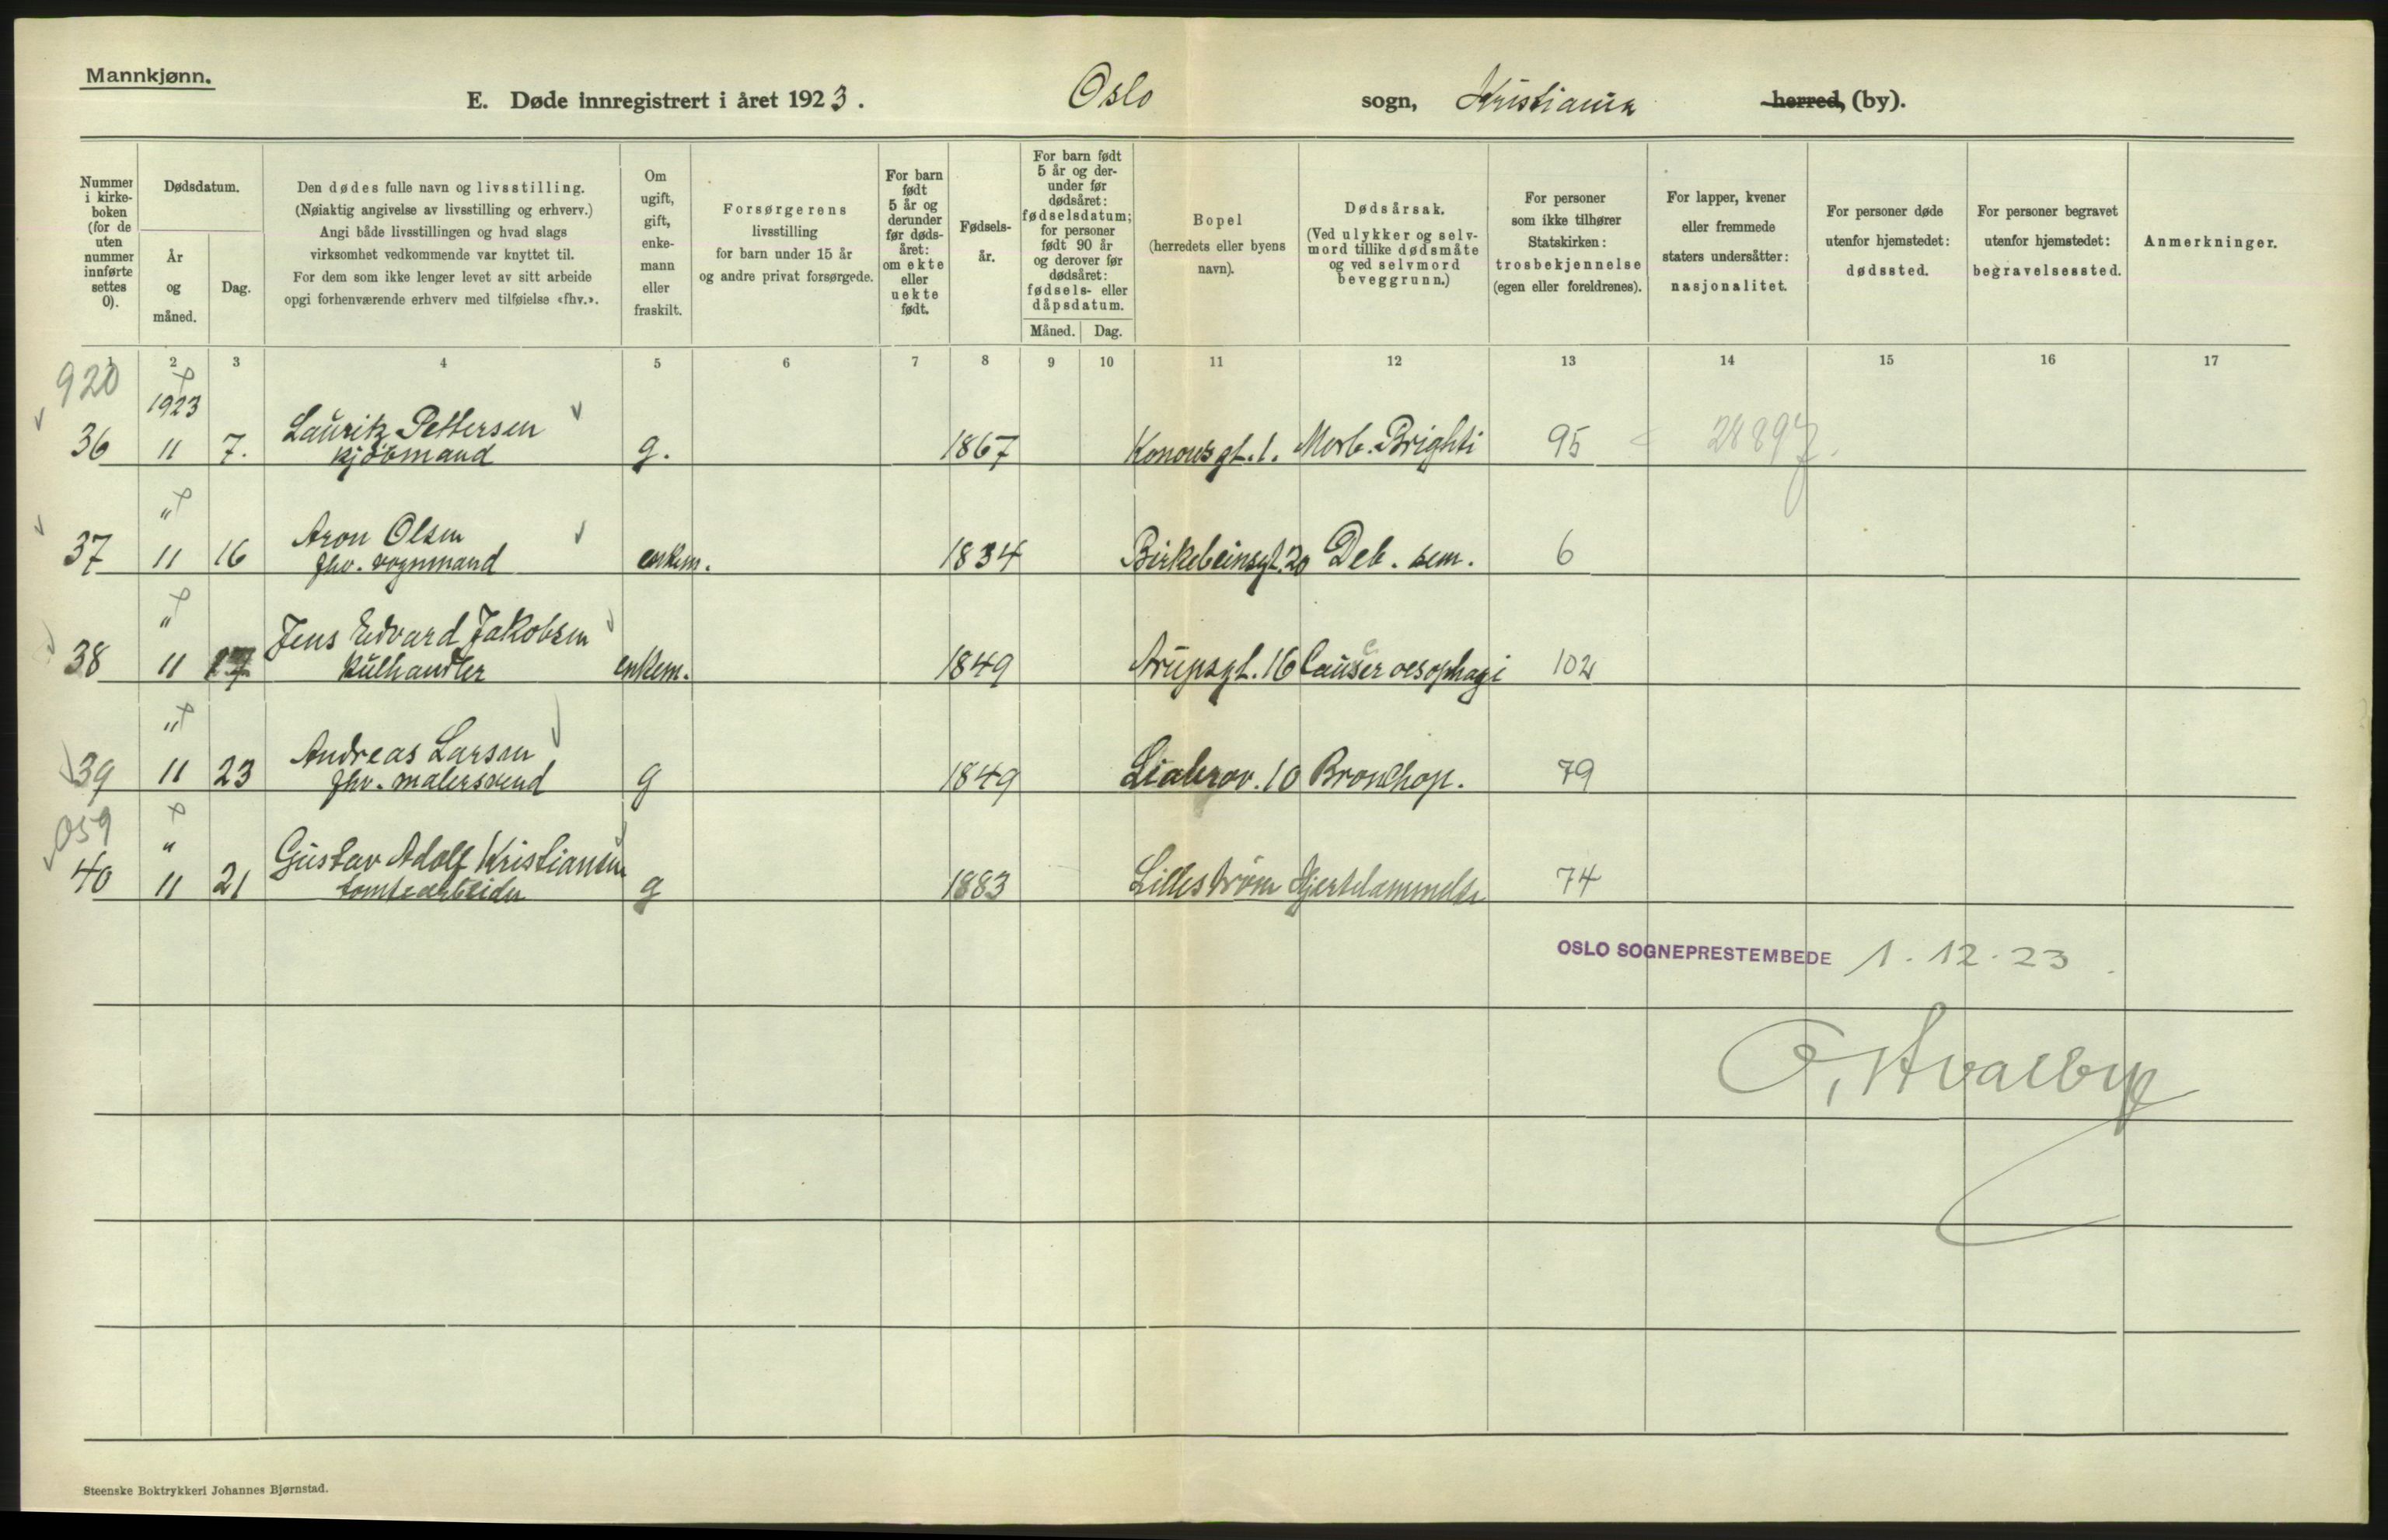 Mannkjønn.
E. Døde innregistrert i året 1923. Oslo sogn, Kristiania herred, (by).
Nummer i kirke-boken (for de uten nummer innførte settes 0).
Dødsdatum.
År og måned.
Dag.
Den dødes fulle navn og livsstilling.
(Nøiaktig angivelse av livsstilling og erhverv.)
Angi både livsstillingen og hvad slags
virksomhet vedkommende var knyttet til.
For dem som ikke lenger levet av sitt arbeide
opgi forhenværende erhverv med tilføielse «fhv.».
Om ugift, gift, enke-mann eller fraskilt.
Forsørgerens
livsstilling
for barn under 15 år
og andre privat forsørgede.
For barn født 5 år og derunder før døds-året: om ekte eller uekte født.
Fødsels-år.
For barn født 5 år og der-under før dødsåret: fødselsdatum; for personer født 90 år og derover før dødsåret: fødsels- eller dåpsdatum.
Måned. Dag.
Bopel
(herredets eller byens navn).
Dødsårsak.
(Ved ulykker og selv-mord tillike dødsmåte og ved selvmord beveggrunn.)
For personer som ikke tilhører Statskirken: trosbekjennelse (egen eller foreldrenes).
For lapper, kvener eller fremmede staters undersåtter: nasjonalitet.
For personer døde utenfor hjemstedet: dødssted.
For personer begravet utenfor hjemstedet: begravelsessted.
Anmerkninger.
1 2 3 4 5 6 7 8 9 10 11 12 13 14 15 16 17
920
1923
36 11 7. Lauritz Pettersen
kjöbmand g. 1867 Konowsgt. 1. Morb. Brighti 95 28897
"
37 11 16 Aron Olsen
fhv. vognmand enkem. 1834 Birkebeinsgt. 20 Deb. sem. 6
"
38 11 17 Jens Edvard Jakobsen
kulhandler enkem. 1849 Arupsgt. 16 Cancer oesophagi 102
"
39 11 23 Andreas Larsen
fhv. malersvend g 1849 Liabrov. 10 Bronchop. 79
059
"
40 11 21 Gustav Adolf Kristiansen
tomtearbeider g 1883 Lillestrøm Hjertelammelse 74
OSLO SOGNEPRESTEMBEDE 1.12.23.
O. Hvalby
Steenske Boktrykkeri Johannes Bjørnstad.